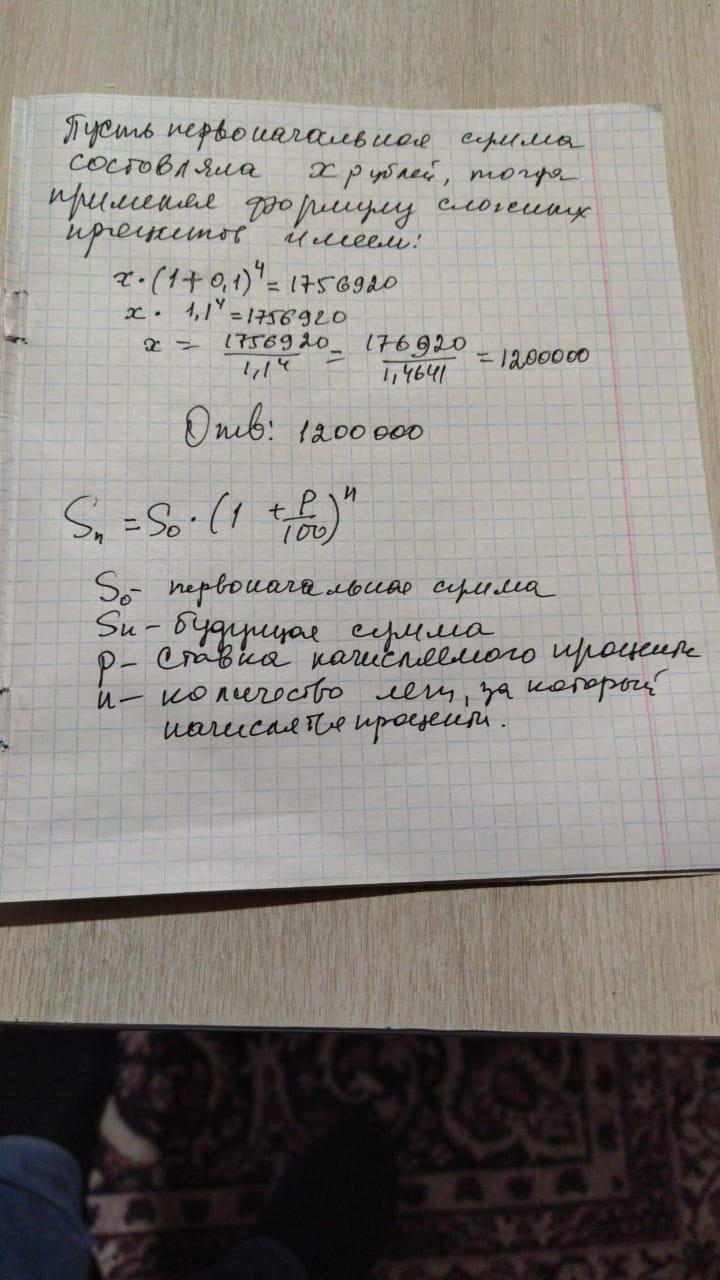 Пусть первоначальная сумма
состовляла x рублей, тогда
применяя формулу сложных
процентов имеем:
x · (1 + 0,1)⁴ = 1756920
x · 1,1⁴ = 1756920
x = 1756920/1,1⁴ = 176920/1,4641 = 1200000
Отв: 1200000
Sₙ = S₀ · (1 + p/100)ⁿ
S₀ – первоначальная сумма
Sн – будущая сумма
p – ставка начисляемого процента
n – количество лет, за который
начисляется проценты.